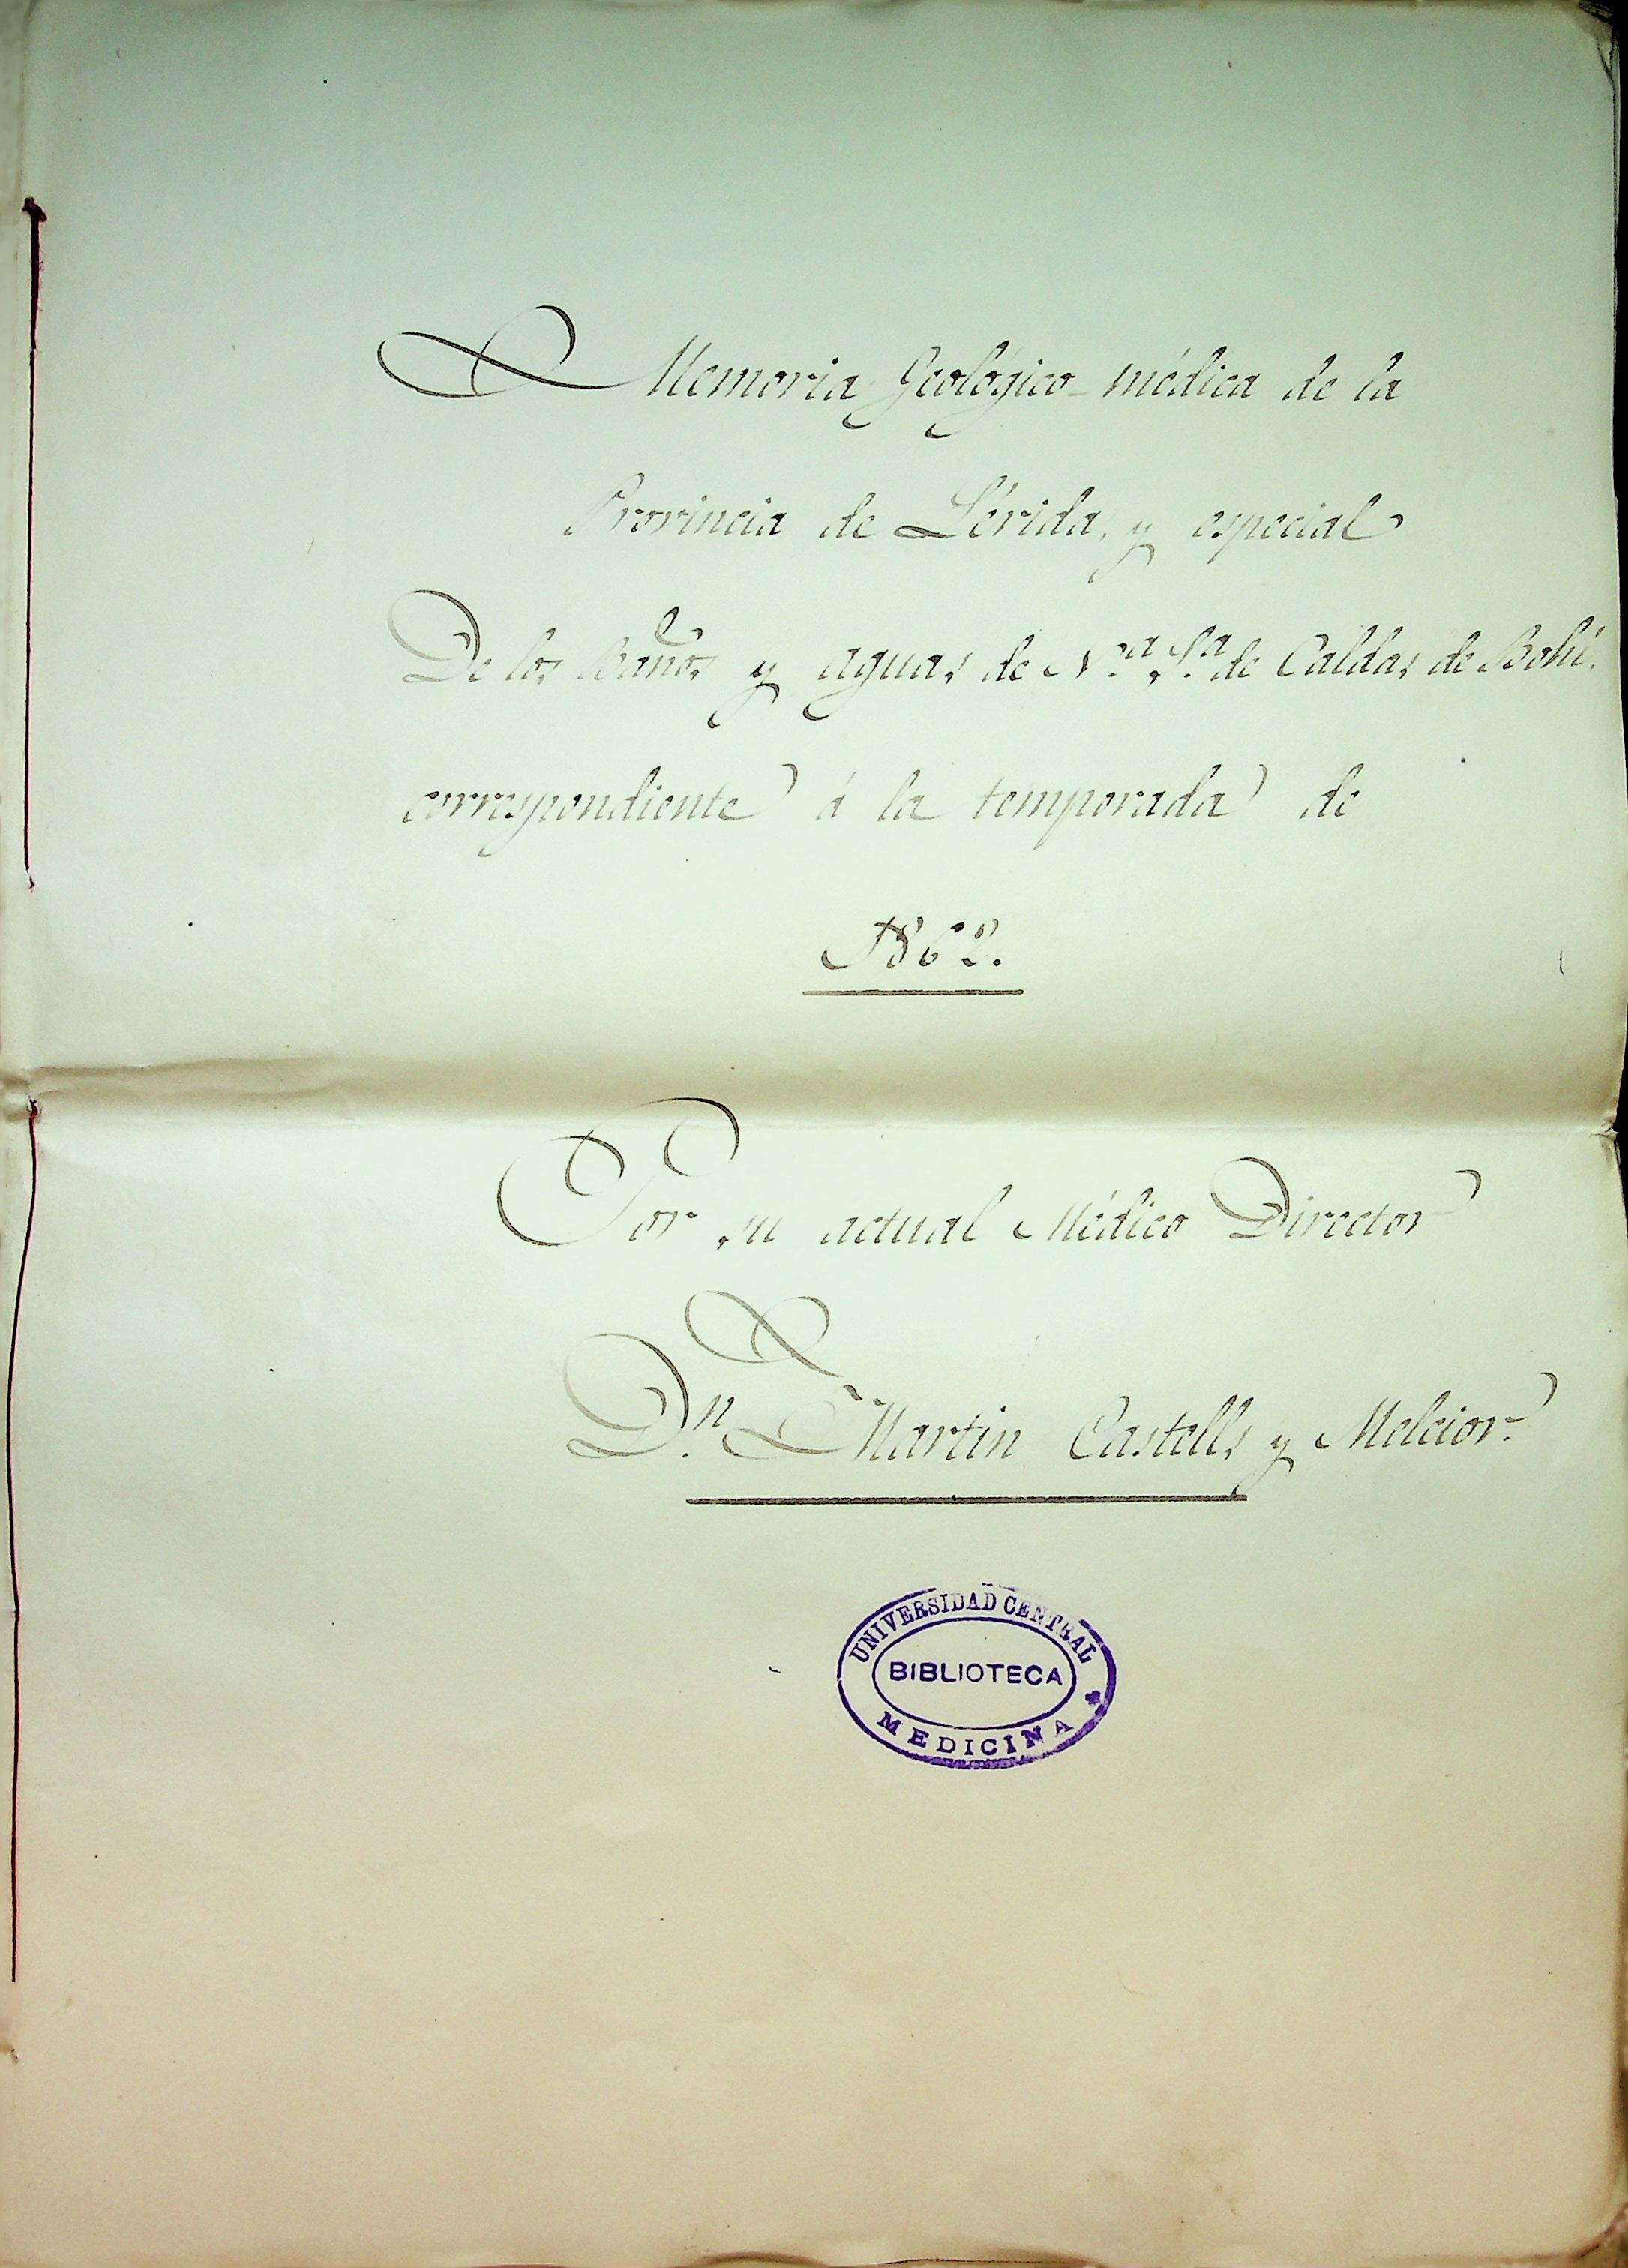 Memoria Geológico-médica de la
Provincia de Lérida, y especial
De los Baños y aguas de N.ra S.ra de Caldas de Bohí.
correspondiente á la temporada de
1862.
Por su actual Médico Director
D.n Martin Castells y Melcior.
UNIVERSIDAD CENTRAL
BIBLIOTECA
MEDICINA